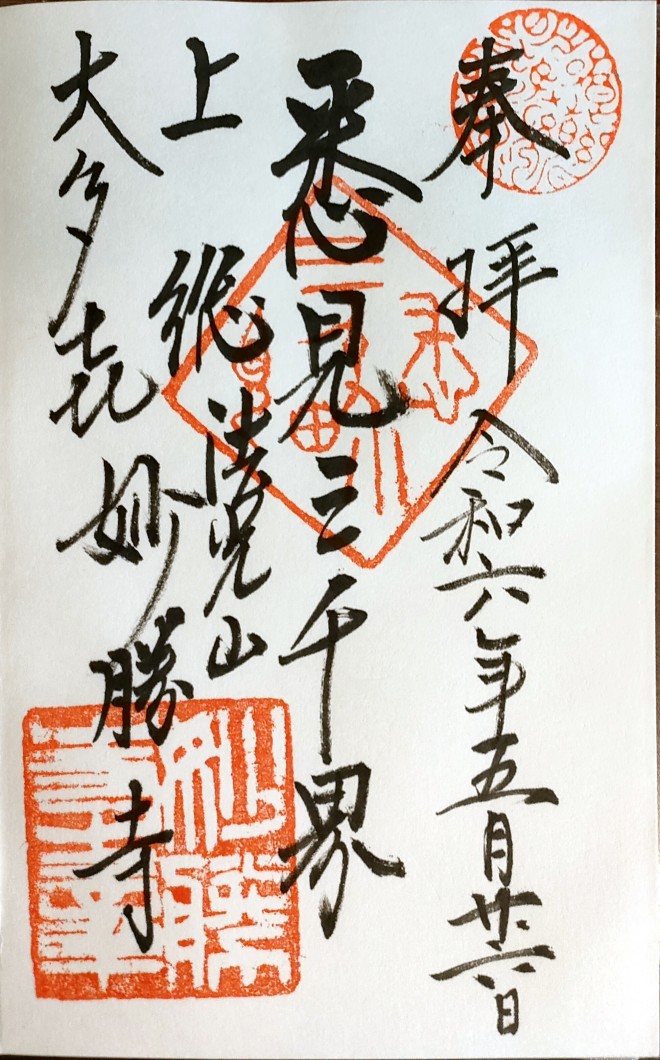 奉拝 令和六年五月廿六日
悉見三千界
上総 法光山
大多喜 妙勝寺